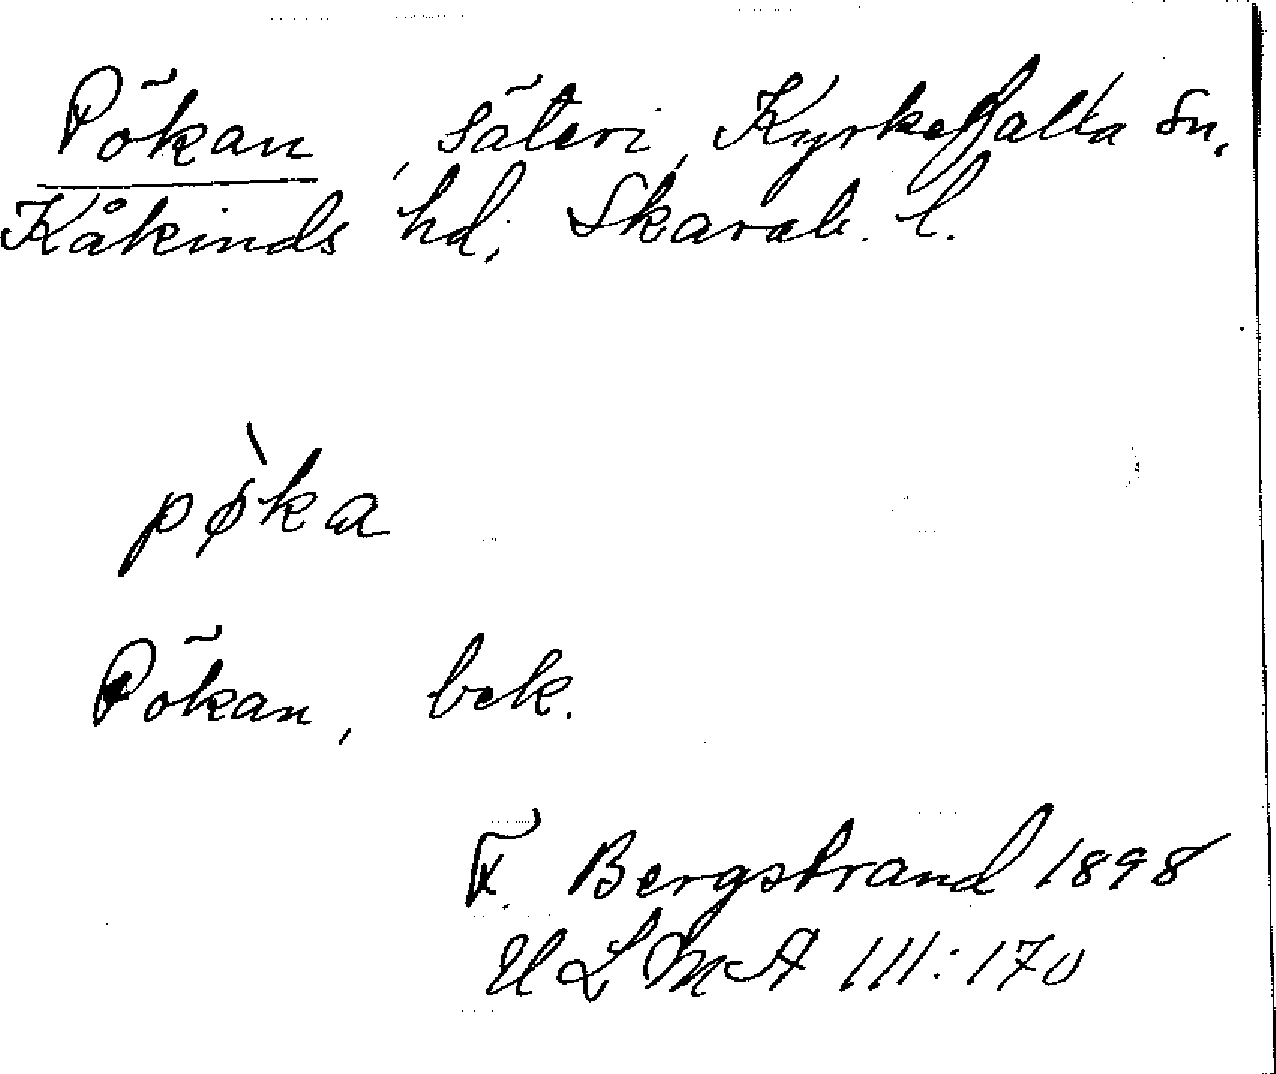 Pökan, säteri, Kyrkefalla sn,
Kåkinds hd, Skarab. l.
pø̀ka
Pökan, bek.
F. Bergstrand 1898
ULMA 111:170